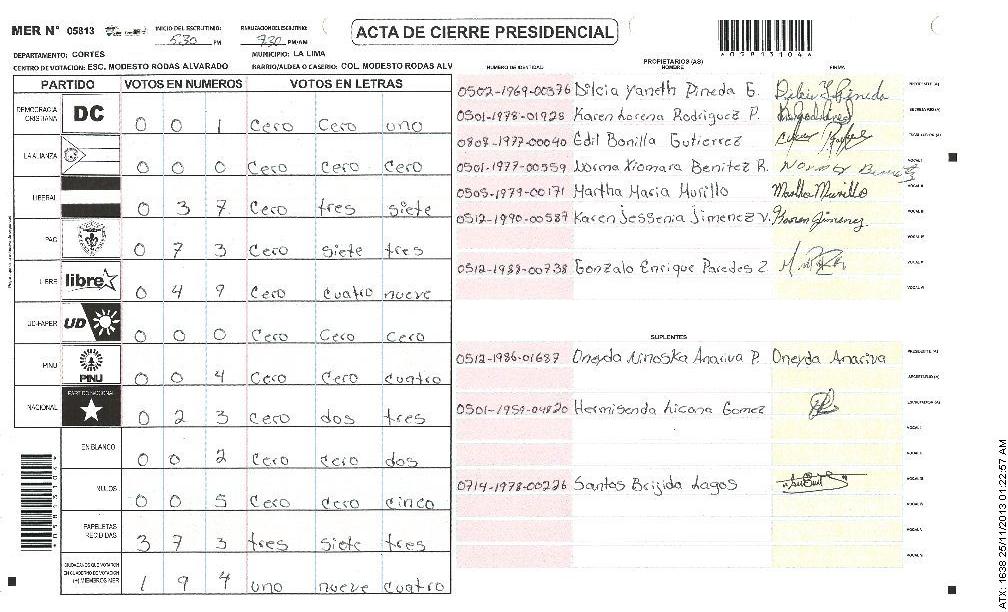 MER N° 05813 INICIO DEL ESCRUTINIO: 5:30 PM FINALIZACION ESCRUTINIO: 7:30 PM/AM
ACTA DE CIERRE PRESIDENCIAL
*058131044*
DEPARTAMENTO: CORTES MUNICIPIO: LA LIMA
CENTRO DE VOTACION: ESC. MODESTO RODAS ALVARADO BARRIO/ALDEA O CASERIO: COL. MODESTO RODAS ALV
PARTIDO VOTOS EN NUMEROS VOTOS EN LETRAS
DEMOCRACIA CRISTIANA DC 0 0 1 Cero Cero uno
LA ALIANZA 0 0 0 Cero Cero Cero
LIBERAL 0 3 7 Cero tres siete
PAC 0 7 3 Cero siete tres
LIBRE libre 0 4 9 Cero cuatro nueve
UD-FAPER UD 0 0 0 Cero Cero Cero
PINU PINU 0 0 4 Cero Cero cuatro
NACIONAL PARTIDO NACIONAL 0 2 3 Cero dos tres
EN BLANCO 0 0 2 Cero Cero dos
NULOS 0 0 5 Cero Cero cinco
PAPELETAS RECIBIDAS 3 7 3 tres siete tres
CIUDADANOS QUE VOTARON EN CUADERNO DE VOTACION (+) MIEMBROS MER 1 9 4 uno nueve cuatro
NUMERO DE IDENTIDAD PROPIETARIOS (AS) NOMBRE FIRMA
0502-1969-00376 Dilcia Yaneth Pineda G. PRESIDENTE (A)
0501-1978-01928 Karen Lorena Rodriguez P. SECRETARIO (A)
0808-1977-00040 Edil Bonilla Gutierrez ESCRUTADOR (A)
0501-1977-00559 Norma Xiomara Benitez R. VOCAL I
0505-1979-00171 Martha Maria Murillo Martha Murillo VOCAL II
0512-1990-00587 Karen Jessenia Jimenez V. Karen Jimenez VOCAL III
VOCAL IV
0512-1988-00738 Gonzalo Enrique Paredes Z. VOCAL V
VOCAL VI
SUPLENTES
0512-1986-01687 Oneyda Ninoska Anariva P. Oneyda Anariva PRESIDENTE (A)
SECRETARIO (A)
0501-1959-04820 Hermisenda Licona Gomez ESCRUTADOR (A)
VOCAL I
VOCAL II
0714-1978-00226 Santos Brijida Lagos VOCAL III
VOCAL IV
VOCAL V
ATX: 1638 25/11/2013 01:22:57 AM